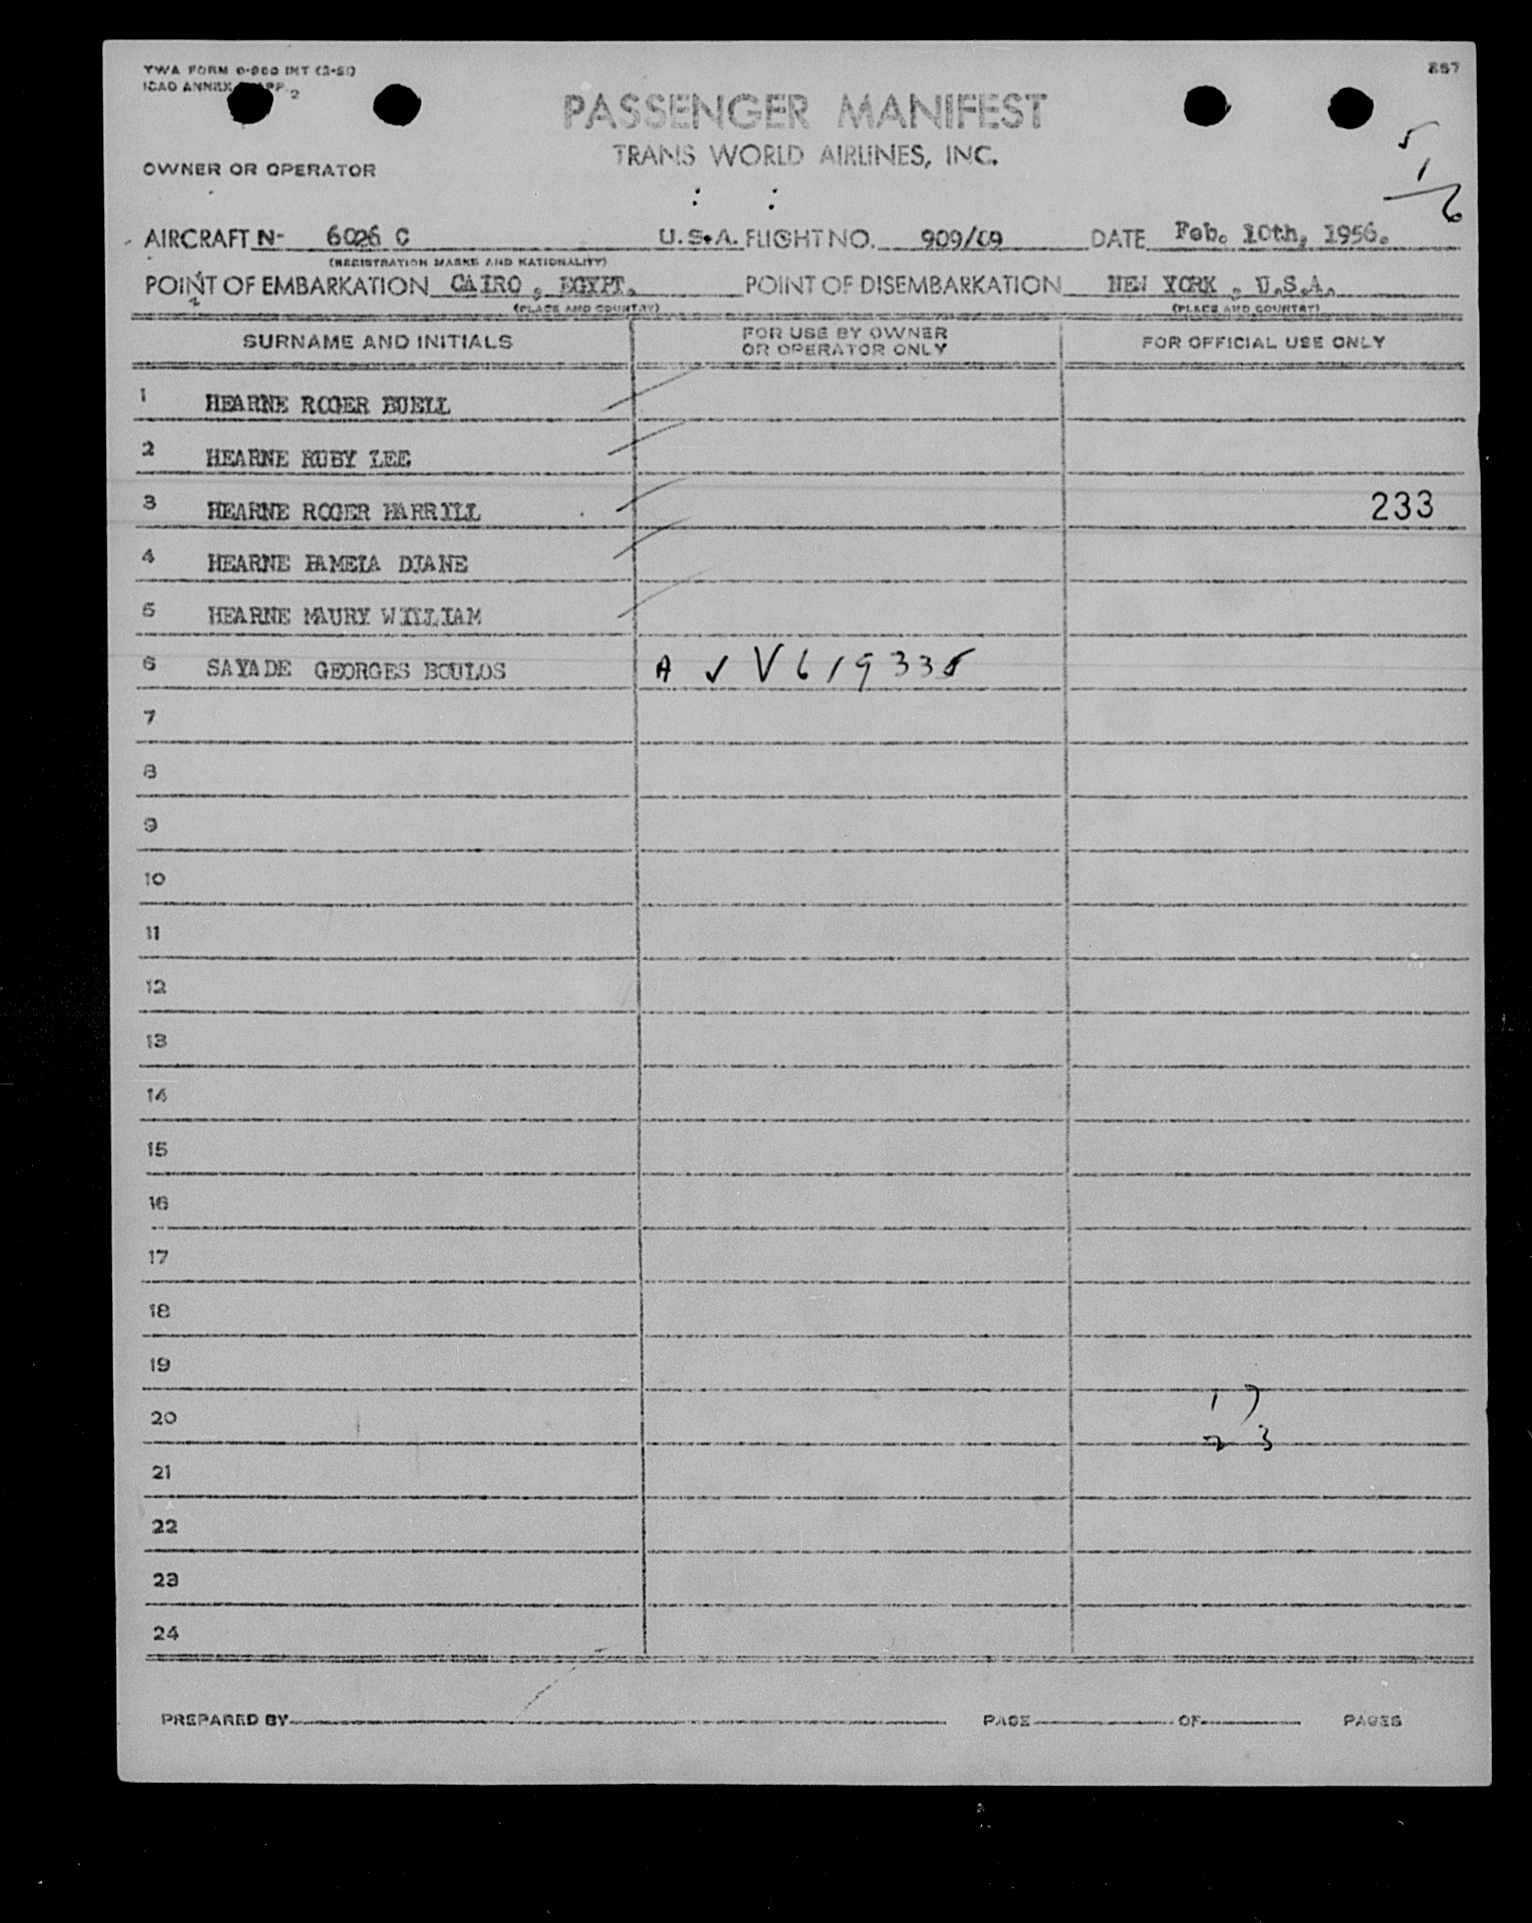 TWA FORM 0-900 INT (2-51)
867
ICAO ANNEX APP. 2
PASSENGER MANIFEST
TRANS WORLD AIRLINES, INC.
5
1
6
OWNER OR OPERATOR
AIRCRAFT N- 6026 C U.S.A. FLIGHT NO. 909/09 DATE Feb. 10th, 1956.
(REGISTRATION MARKS AND NATIONALITY)
POINT OF EMBARKATION CAIRO , EGYPT. POINT OF DISEMBARKATION NEW YORK , U.S.A.
(PLACE AND COUNTRY) (PLACE AND COUNTRY)
SURNAME AND INITIALS FOR USE BY OWNER OR OPERATOR ONLY FOR OFFICIAL USE ONLY
1 HEARNE ROGER BUELL
2 HEARNE RUBY LEE
3 HEARNE ROGER HARRILL 233
4 HEARNE PAMELA DIANE
5 HEARNE MAURY WILLIAM
6 SAYADE GEORGES BOULOS A ✓ V619335
7
8
9
10
11
12
13
14
15
16
17
18
19
20 17
23
21
22
23
24
PREPARED BY PAGE OF PAGES